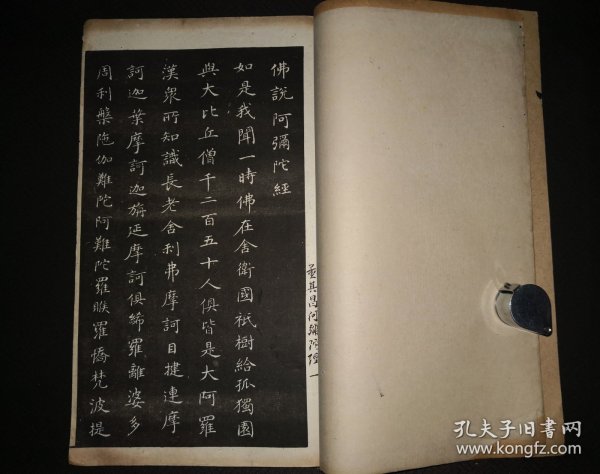 佛說阿彌陀經
如是我聞一時佛在舍衛國祇樹給孤獨園
與大比丘僧千二百五十人俱皆是大阿羅
漢衆所知識長老舍利弗摩訶目揵連摩
訶迦葉摩訶迦旃延摩訶俱絺羅離婆多
周利槃陁伽難陀阿難陀羅睺羅憍梵波提
董其昌阿彌陀經 一
孔夫子旧书网
www.kongfz.com